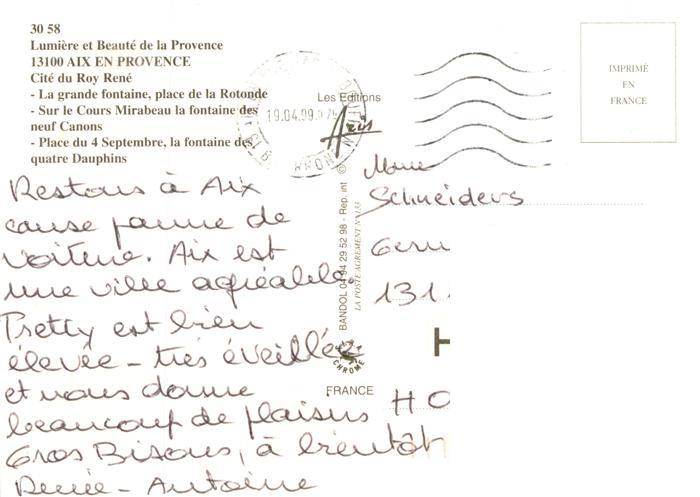 30 58
Lumière et Beauté de la Provence
13100 AIX EN PROVENCE
Cité du Roy René
- La grande fontaine, place de la Rotonde
- Sur le Cours Mirabeau la fontaine des
neuf Canons
- Place du 4 Septembre, la fontaine des
quatre Dauphins
Restons à Aix
cause panne de
voiture. Aix est
une ville agréable.
Pretty est bien
élevée - très éveillée
et nous donne
beaucoup de plaisirs
Gros Bisous, à bientôt
Renée - Antoine
19.04.99
RHONE
Les Editions
Azis
BANDOL 04 94 29 52 98 - Rep. int ©
LA POSTE AGREMENT N°
FRANCE
IMPRIMÉ
EN
FRANCE
Schneiders
131
H
HO